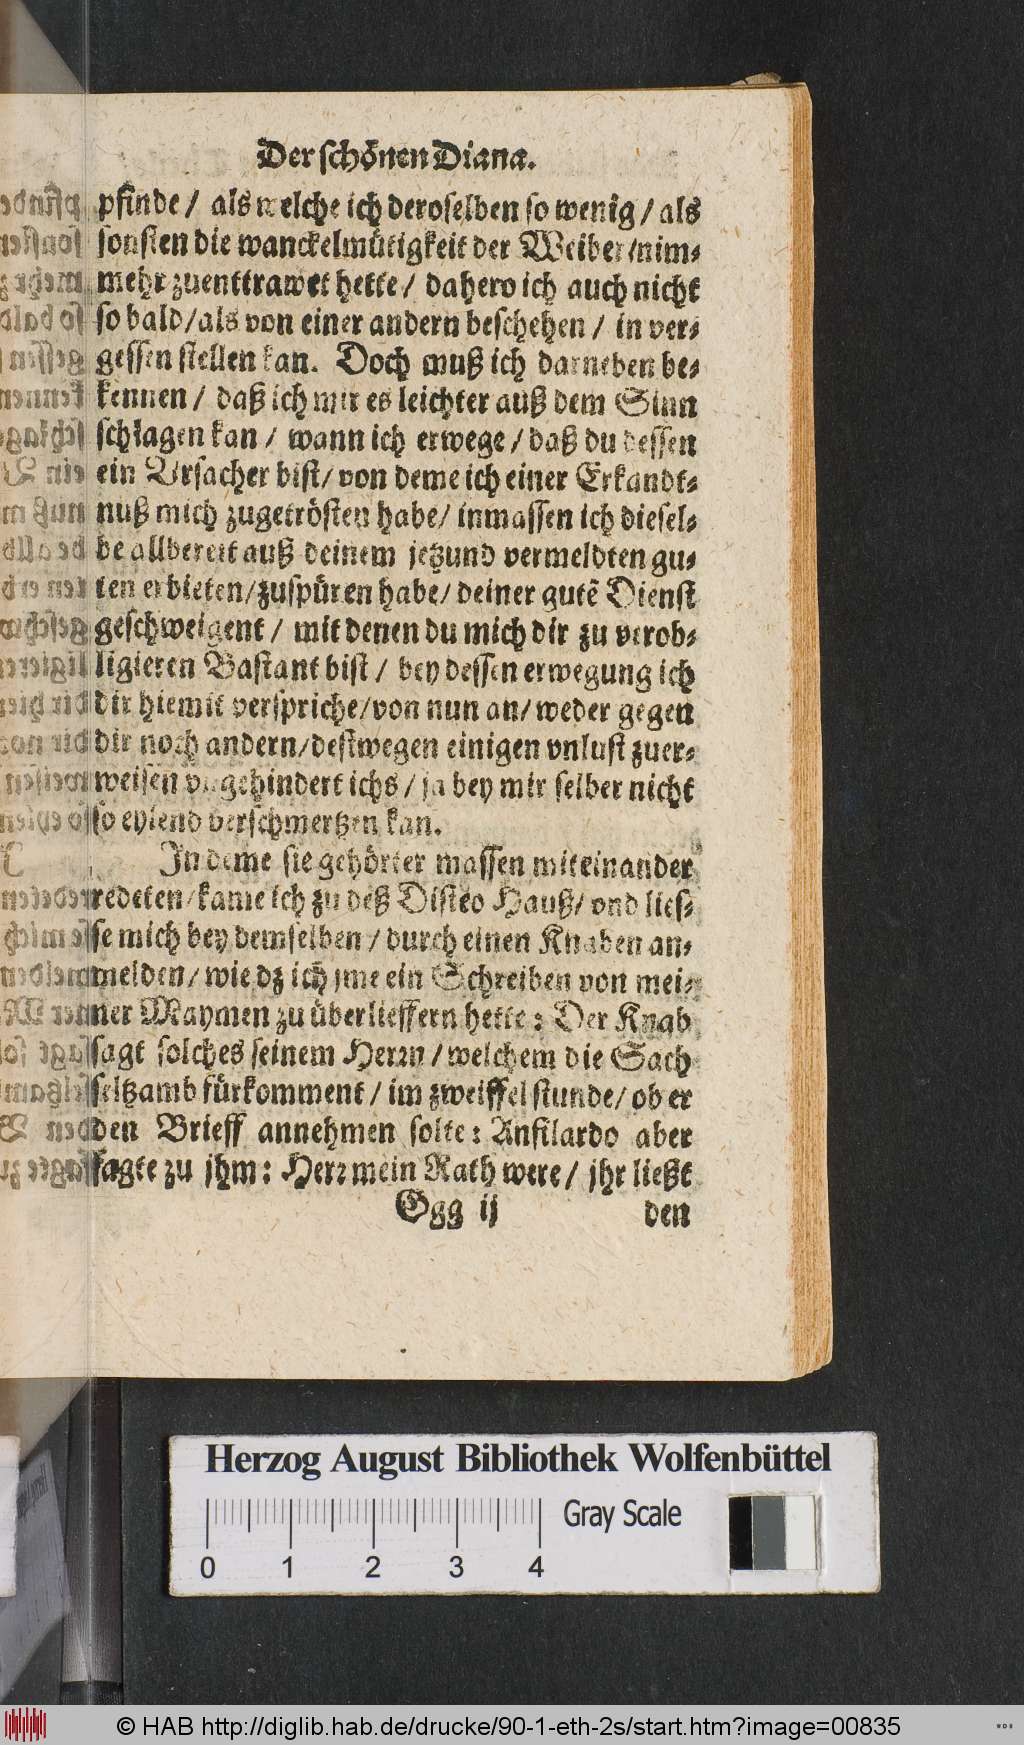 Der schönen Diana.
pfinde / als welche ich deroselben so wenig / als
sonsten die wanckelmütigkeit der Weiber / nim-
mehr zuenttrawet hette / dahero ich auch nicht
so bald / als von einer andern beschehen / in ver-
gessen stellen kan. Doch muß ich darneben be-
kennen / daß ich mir es leichter auß dem Sinn
schlagen kan / wann ich erwege / daß du dessen
ein Vrsacher bist / von deme ich einer Erkandt-
nuß mich zugetrösten habe / inmassen ich diesel-
be allbereit auß deinem jetzund vermeldten gu-
ten erbieten / zuspüren habe / deiner gutē Dienst
geschweigent / mit denen du mich dir zu verob-
ligieren Bastant bist / bey dessen erwegung ich
dir hiemit verspriche / von nun an / weder gegen
dir noch andern / destwegen einigen vnlust zuer-
weisen vngehindert ichs / ja bey mir selber nicht
so eylend verschmertzen kan.
In deme sie gehörter massen miteinander
redeten / kame ich zu deß Disteo Hauß / vnd lies-
se mich bey demselben / durch einen Knaben an-
melden / wie dz ich jme ein Schreiben von mei-
ner Maymen zu überlieffern hette : Der Knab
sagt solches seinem Herrn / welchem die Sach
seltzamb fürkomment / im zweiffel stunde / ob er
den Brieff annehmen solte : Anfilardo aber
sagte zu jhm : Herr mein Rath were / jhr ließt
Ggg ij den
Herzog August Bibliothek Wolfenbüttel
Gray Scale
0 1 2 3 4
© HAB http://diglib.hab.de/drucke/90-1-eth-2s/start.htm?image=00835